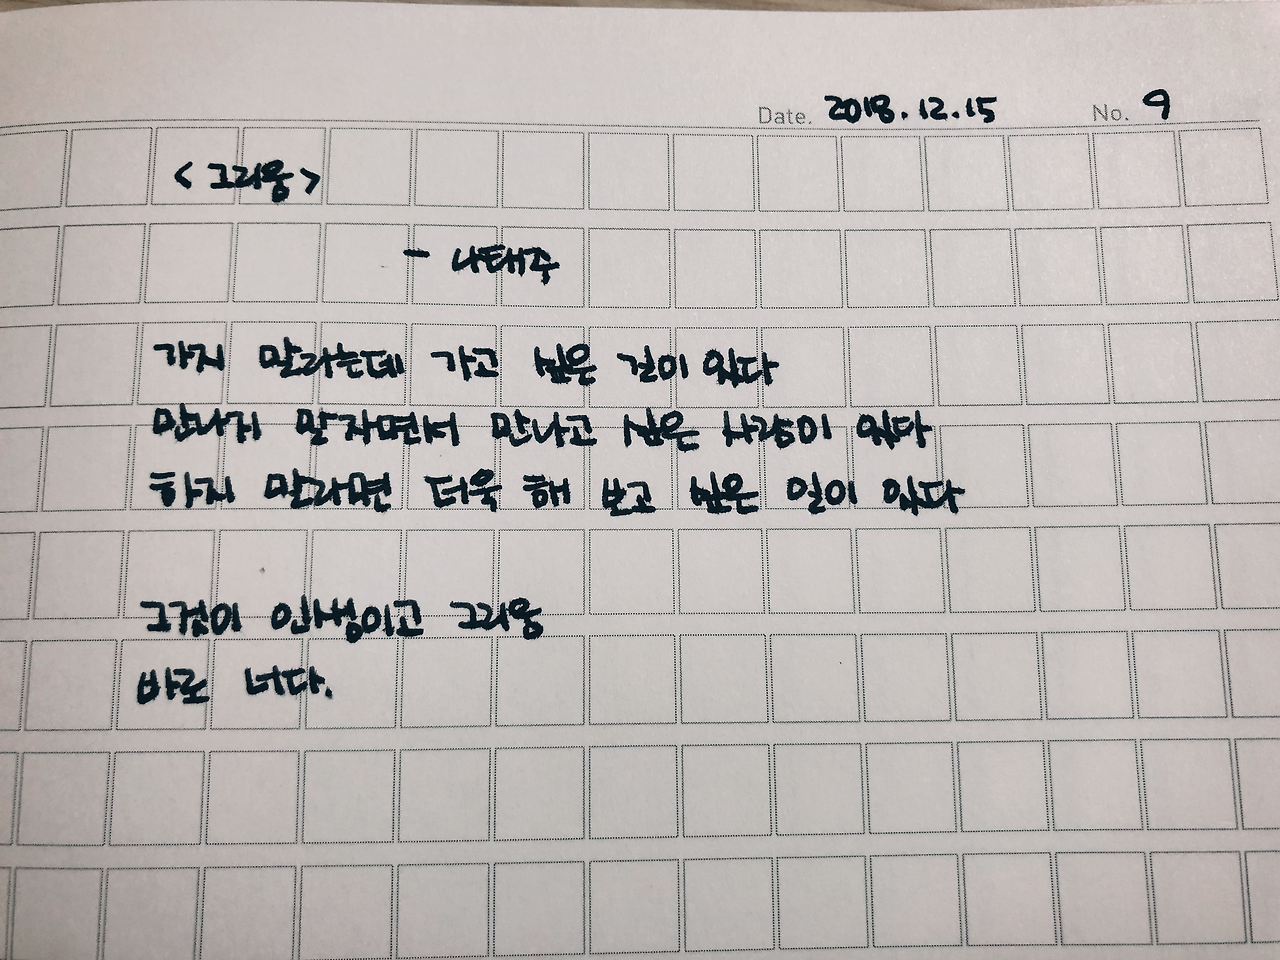 Date. 2018.12.15 No. 9
<그리움>
- 나태주
가지 말라는데 가고 싶은 길이 있다
만나지 말자면서 만나고 싶은 사람이 있다
하지 말라면 더욱 해 보고 싶은 일이 있다
그것이 인생이고 그리움
바로 너다.